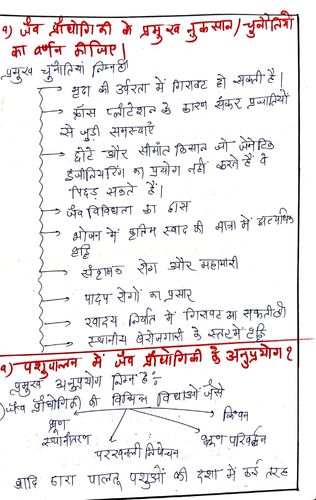 १) जैव प्रौद्योगिकी के प्रमुख नुकसान/चुनौतियों
का वर्णन कीजिए।
प्रमुख चुनौतियां निम्न हैं।
→ मृदा की उर्वरता में गिरावट हो सकती है।
→ क्रॉस प्लांटेशन के कारण संकर प्रजातियों
से जुड़ी समस्याएँ
→ छोटे और सीमांत किसान जो जेनेटिक
इंजीनियरिंग का प्रयोग नहीं करते हैं वे
पिछड़ सकते हैं।
→ जैव विविधता का ह्रास
→ भोजन में कृत्रिम स्वाद की मात्रा में अत्यधिक
वृद्धि
→ संक्रामक रोग और महामारी
→ पादप रोगों का प्रसार
→ खाद्य निर्यात में गिरावट आ सकती है
→ स्थानीय बेरोजगारी के स्तर में वृद्धि
२) पशुपालन में जैव प्रौद्योगिकी के अनुप्रयोग?
प्रमुख अनुप्रयोग निम्न हैं:-
जैव प्रौद्योगिकी की विभिन्न विधाओं जैसे
भ्रूण स्थानांतरण
परखनली निषेचन
भ्रूण परिवर्तन
किण्वन
आदि द्वारा पालतू पशुओं की दशा में कई तरह